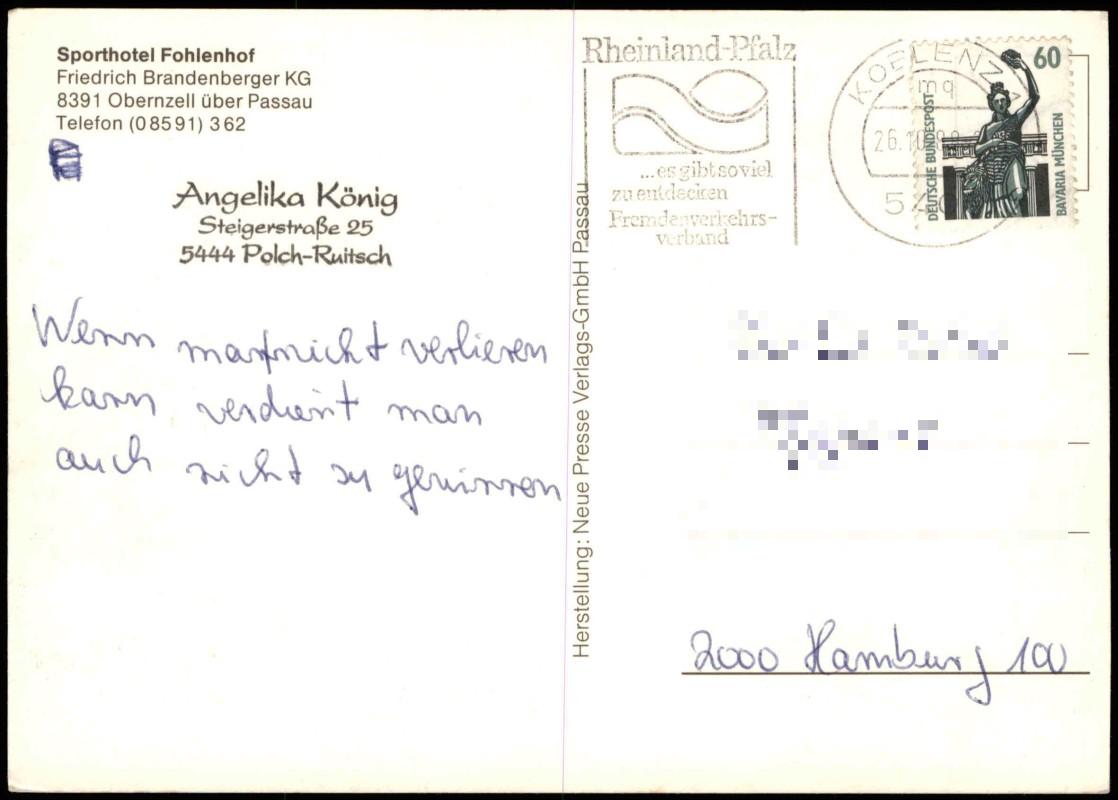 Sporthotel Fohlenhof
Friedrich Brandenberger KG
8391 Obernzell über Passau
Telefon (08591) 362
Angelika König
Steigerstraße 25
5444 Polch-Ruitsch
Wenn man nicht verlieren
kann verdient man
auch nicht zu gewinnen
Herstellung: Neue Presse Verlags-GmbH Passau
Rheinland-Pfalz
...es gibt soviel
zu entdecken
Fremdenverkehrs-
verband
KOBLENZ
mq
26.10
54
60
DEUTSCHE BUNDESPOST
BAVARIA MÜNCHEN
2000 Hamburg 100